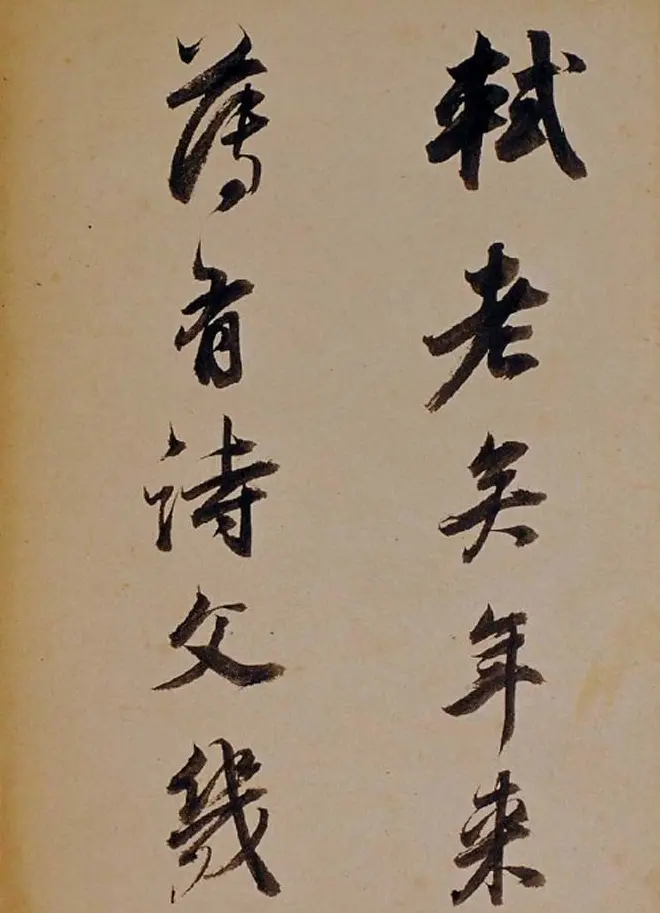 軾老矣年來
薄有詩文幾